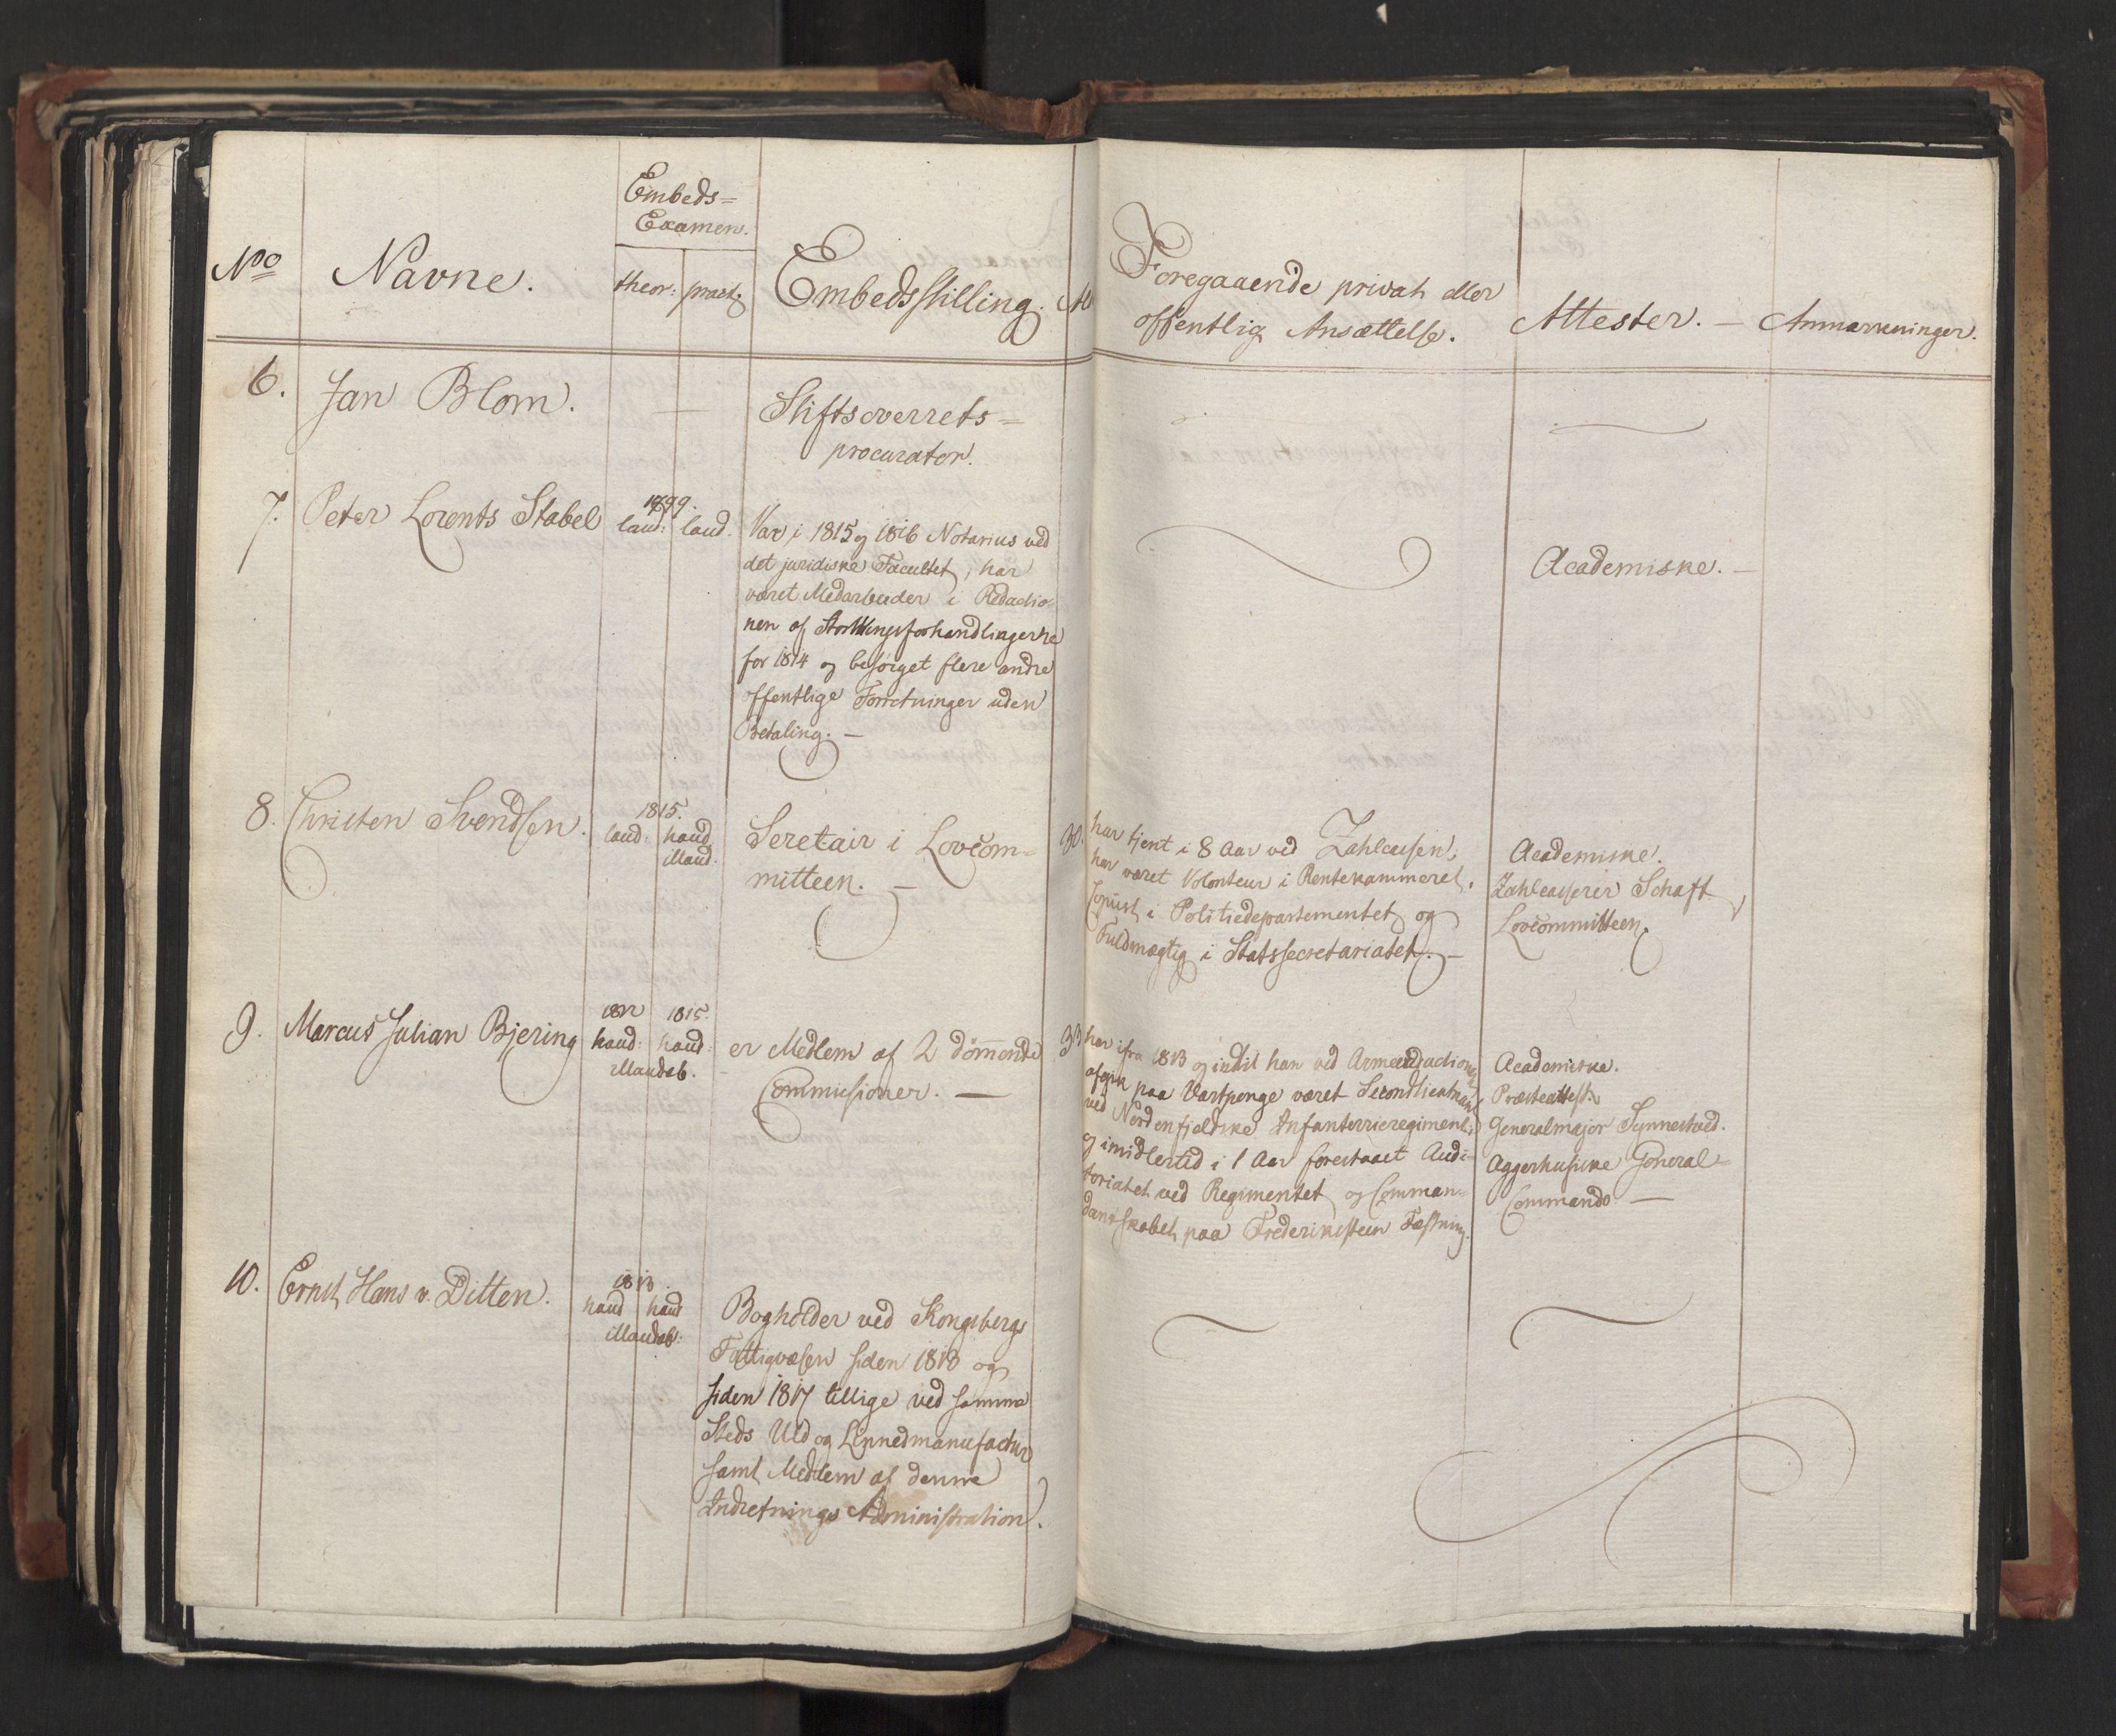 Embeds=
Examen.
No Navne. theor: pract: Embedsstilling.
Foregaaende privat eller
offentlig Ansættelse. Attester. — Anmærkninger.
6. Jan Blom. — Stiftsoverrets=
procurator.
7. Peter Lorents Stabel 1799. laud: laud.
Var i 1815 og 1816 Notarius ved
det juridiske Facultet, har
været Medarbeider i Redactio-
nen af Storthingsforhandlingerne
for 1814 og besørget flere andre
offentlige Forretninger uden
Betaling. —
Academiske. —
8. Christen Svendsen. 1815.
laud: haud
illaud.
Seretair i Lovcom=
mitteen. —
30. har tjent i 8 Aar ved Zahlcassen,
har været Volonteur i Rentekammeret,
Copiist i Politiedepartementet og
Fuldmægtig i Statssecretariatet. —
Academiske.
Zahlcasserer Schaft
Lovcommitteen.
9. Marcus Julian Bjering 1812 1815.
haud: haud:
illaudab.
er Medlem af 2 dömmende
Commissioner. —
33 har ifra 1813 og indtil han ved Armeereductionen
afgik paa Vartpenge været Secondlieutnant
ved Nordenfjeldske Infanterieregiment,
og imidlertid i 1 Aar forestaaet Audi=
toriatet ved Regimentet og Comman=
dantskabet paa Frederiksteen Fæstning.
Academiske.
Præsteattest.
Generalmajor Synnestved.
Aggerhusiske General=
Commando —
10. Ernst Hans v. Ditten. 1813.
haud haud
illaudab:
Bogholder ved Kongsbergs
Fattigvæsen siden 1813 og
siden 1817 tillige ved samme
Steds Uld og Linnedmanufactur
samt Medlem af denne
Indretnings Administration.